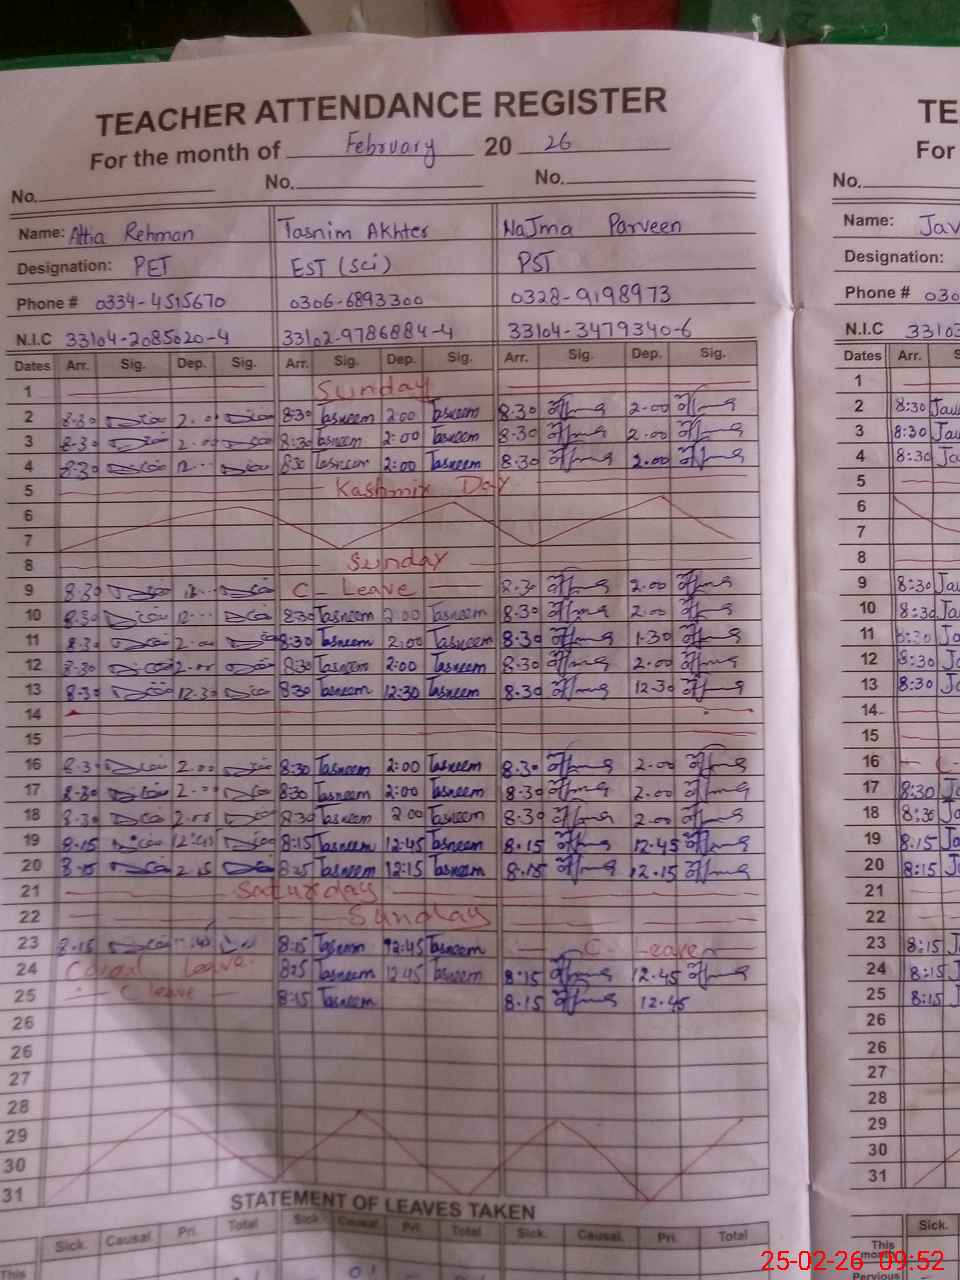 TEACHER ATTENDANCE REGISTER
For the month of February 20 26
No. No. No.
Name: Attia Rehman Tasnim Akhter NaJma Parveen
Designation: PET EST (Sci) PST
Phone # 0334-4515670 0306-6893300 0328-9198973
N.I.C 33104-2085020-4 33102-9786884-4 33104-3479340-6
Dates Arr. Sig. Dep. Sig. Arr. Sig. Dep. Sig. Arr. Sig. Dep. Sig.
1 Sunday
2 8-30 2.00 8:30 Tasneem 2:00 Tasneem 8-30 2.00
3 8-30 2.00 8:30 Tasneem 2:00 Tasneem 8-30 2.00
4 8-30 8:30 Tasneem 2:00 Tasneem 8-30 2.00
5 Kashmir Day
6
7
8 Sunday
9 8-30 C- Leave 8-30 2.00
10 8-30 8:30 Tasneem 2:00 Tasneem 8-30 2.00
11 8-30 2.00 8:30 Tasneem 2:00 Tasneem 8-30 1-30
12 8-30 2.00 8:30 Tasneem 2:00 Tasneem 8-30 2.00
13 8-30 12-30 8:30 Tasneem 12:30 Tasneem 8-30 12-30
14
15
16 8-30 2.00 8:30 Tasneem 2:00 Tasneem 8-30 2.00
17 8-30 2.00 8:30 Tasneem 2:00 Tasneem 8-30 2.00
18 8-30 2.00 8:30 Tasneem 2:00 Tasneem 8-30 2.00
19 8-15 12:45 8:15 Tasneem 12:45 Tasneem 8-15 12-45
20 8-15 8:15 Tasneem 12:15 Tasneem 8-15 12-15
21 Saturday
22 Sunday
23 8-15 8:15 Tasneem 12:45 Tasneem C- Leave
24 Leave 8:15 Tasneem 12:45 Tasneem 8:15 12-45
25 C leave 8:15 Tasneem 8-15 12-45
26
26
27
28
29
30
31
STATEMENT OF LEAVES TAKEN
Sick. Causal. Pri. Total Sick. Causal. Pri. Total Sick. Causal. Pri. Total
This
TE
For
No.
Name: Jav
Designation:
Phone # 030
N.I.C 3310
Dates Arr. S
1
2 8:30 Jav
3 8:30 Ja
4 8:30 Ja
5
6
7
8
9 8:30 Ja
10 8:30 Ja
11 8:30 Ja
12 8:30 Ja
13 8:30 Ja
14
15
16 C-
17 8:30 Ja
18 8:30 Ja
19 8.15 Ja
20 8:15 Ja
21
22
23 8:15 J
24 8:15 J
25 8:15 J
26
26
27
28
29
30
31
Sick.
This
month
Pervious
25-02-26 09:52